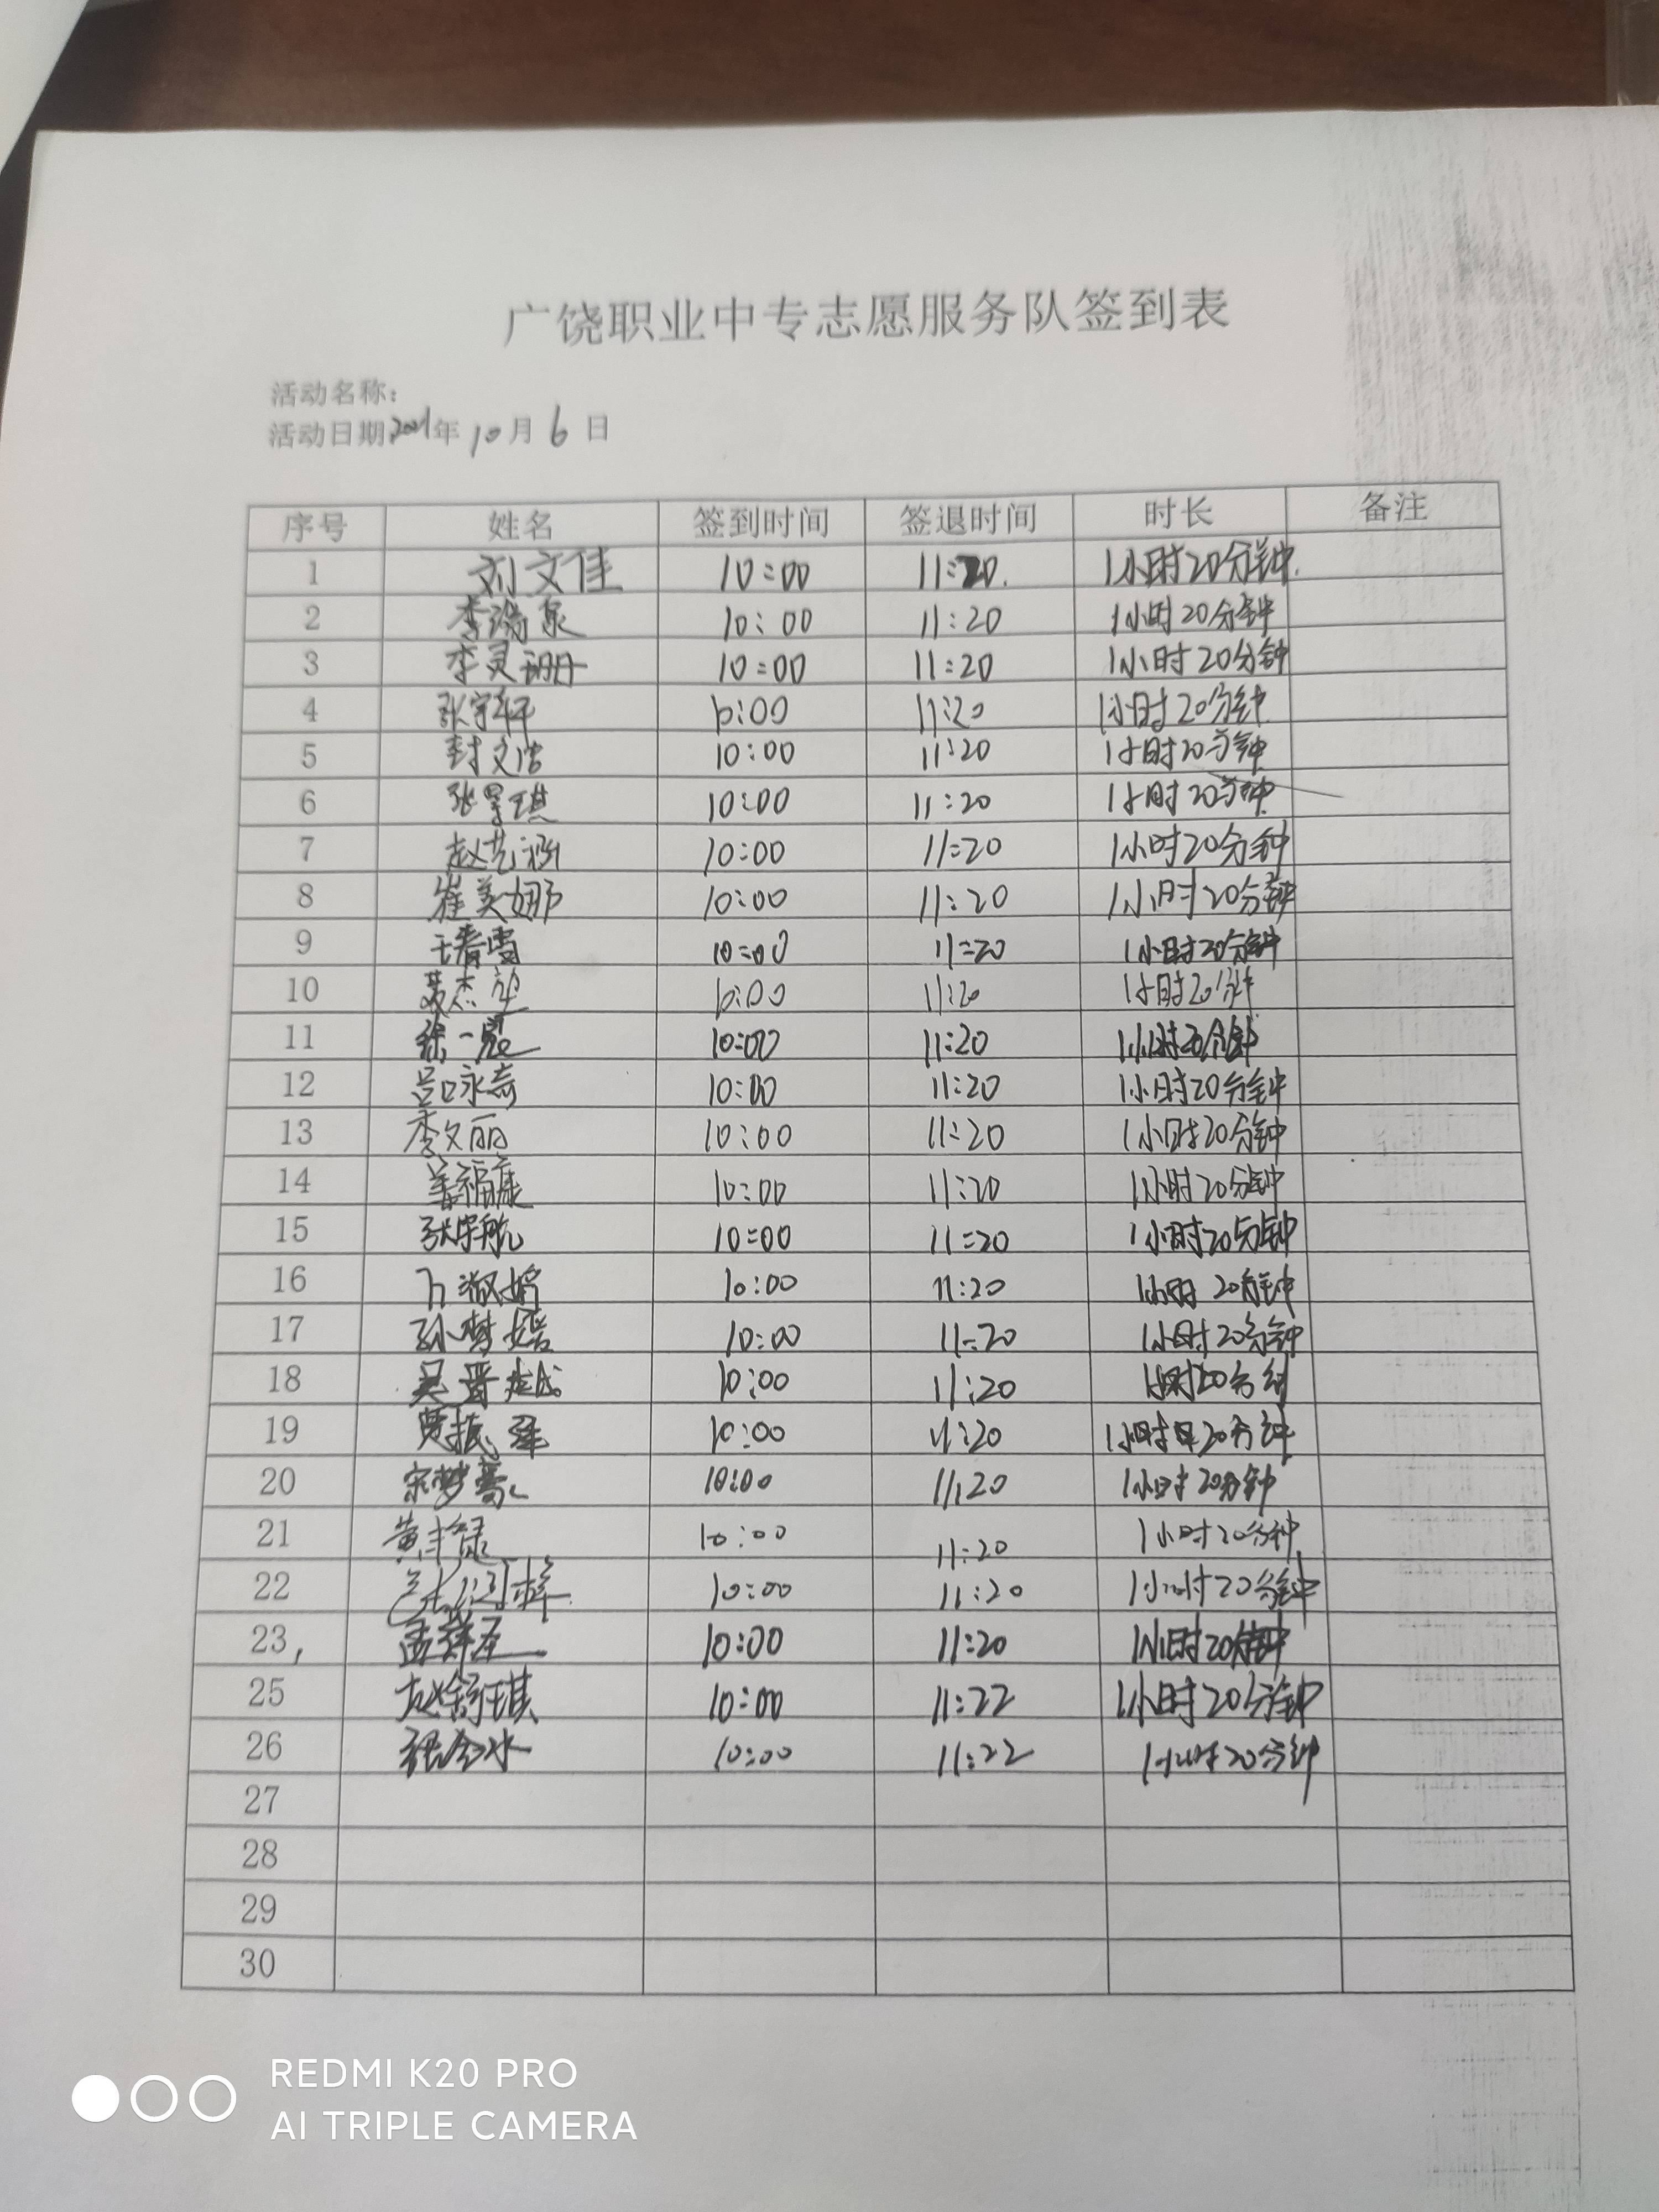 广饶职业中专志愿服务队签到表
活动名称:
活动日期2021年 10月 6 日
序号 姓名 签到时间 签退时间 时长 备注
1 刘文佳 10:00 11:20. 1小时20分钟.
2 李瑞泉 10:00 11:20 1小时20分钟
3 李灵珊 10:00 11:20 1小时20分钟
4 张宇轩 10:00 11:20 1小时20分钟
5 封文浩 10:00 11:20 1小时20分钟
6 张昊琪 10:00 11:20 1小时20分钟
7 赵艺涵 10:00 11:20 1小时20分钟
8 崔美娜 10:00 11:20 1小时20分钟
9 10:00 11:20 1小时20分钟
10 10:00 11:20 1小时20分钟
11 徐一冕 10:00 11:20 1小时20分钟
12 吕咏奇 10:00 11:20 1小时20分钟
13 李文丽 10:00 11:20 1小时20分钟
14 姜福康 10:00 11:20 1小时20分钟
15 张宇航 10:00 11:20 1小时20分钟
16 10:00 11:20 1小时 20分钟
17 孙梦嫣 10:00 11:20 1小时20分钟
18 吴晋 10:00 11:20 1小时20分钟
19 贾振 10:00 11:20 1小时20分钟
20 宋梦豪 10:00 11:20 1小时20分钟
21 黄丰禄 10:00 11:20 1小时20分钟
22 10:00 11:20 1小时20分钟
23, 孟祥圣 10:00 11:20 1小时20分钟
25 赵舒琪 10:00 11:22 1小时20分钟
26 张冬冰 10:00 11:22 1小时20分钟
27
28
29
30
REDMI K20 PRO
AI TRIPLE CAMERA